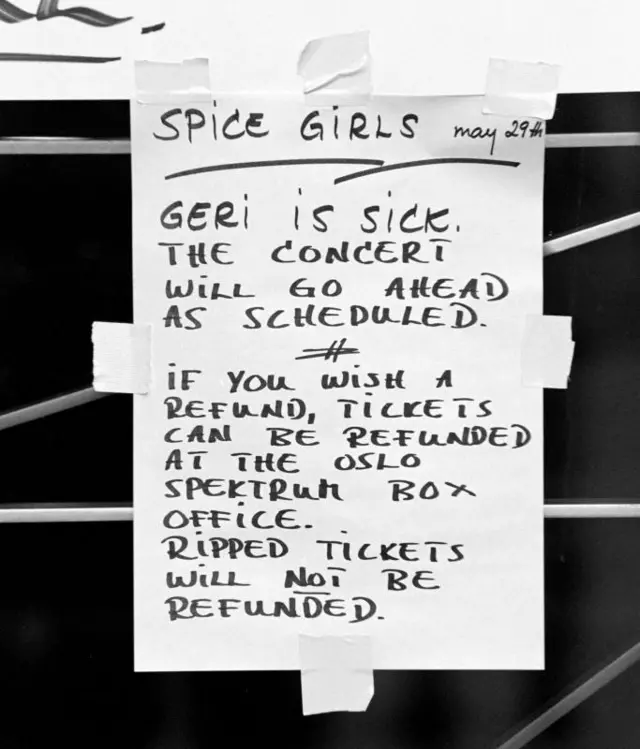 SPICE GIRLS may 29th
GERI IS SICK.
THE CONCERT
WILL GO AHEAD
AS SCHEDULED.
IF YOU WISH A
REFUND, TICKETS
CAN BE REFUNDED
AT THE OSLO
SPEKTRUM BOX
OFFICE.
RIPPED TICKETS
WILL NOT BE
REFUNDED.